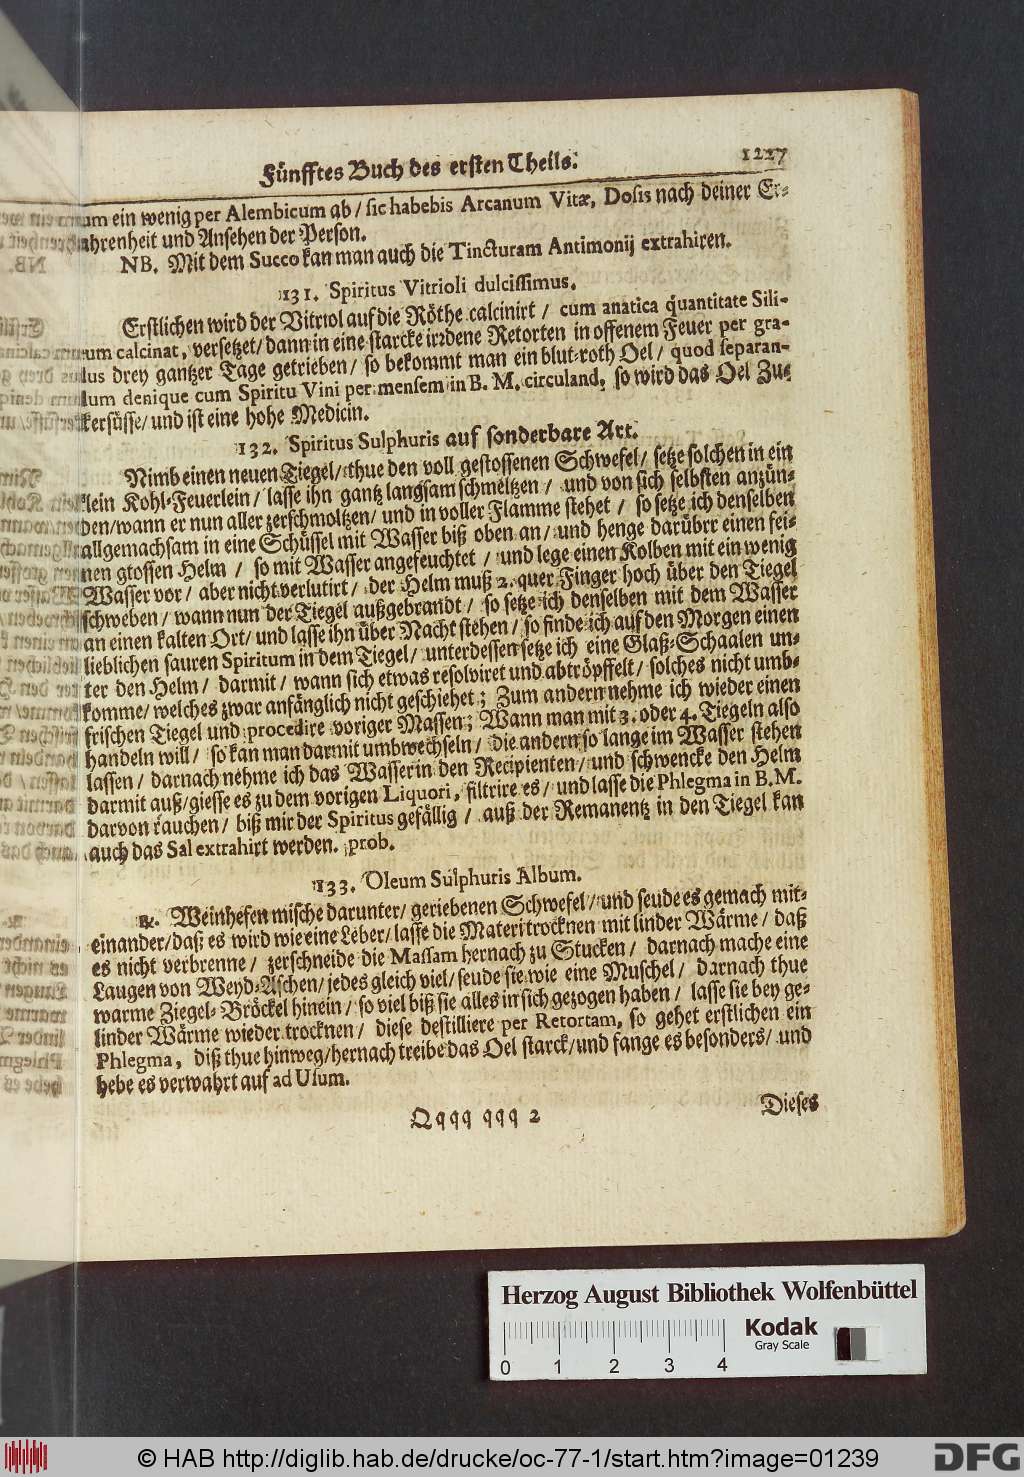 Fünfftes Buch des ersten Theils. 1227
um ein wenig per Alembicum ab / sic habebis Arcanum Vitæ, Dosis nach deiner Er-
fahrenheit und Ansehen der Person.
NB. Mit dem Succo kan man auch die Tincturam Antimonij extrahiren.
131. Spiritus Vitrioli dulcissimus.
Erstlichen wird der Vitriol auf die Röthe calcinirt / cum anatica quantitate Sili-
cum calcinat, versetzet / dann in eine starcke irrdene Retorten in offenem Feuer per gra-
dus drey gantzer Tage getrieben / so bekommt man ein blut-roth Oel / quod separan-
dum denique cum Spiritu Vini per mensem in B. M. circuland, so wird das Oel Zu-
ckersüsse / und ist eine hohe Medicin.
132. Spiritus Sulphuris auf sonderbare Art.
Nimb einen neuen Tiegel / thue den voll gestossenen Schwefel / setze solchen in ein
klein Kohl-Feuerlein / lasse ihn gantz langsam schmeltzen / und von sich selbsten anzün-
den / wann er nun aller zerschmoltzen / und in voller Flamme stehet / so setze ich denselben
allgemachsam in eine Schüssel mit Wasser biß oben an / und henge darübrr einen fei-
nen gtossen Helm / so mit Wasser angefeuchtet / und lege einen Kolben mit ein wenig
Wasser vor / aber nicht verlutirt / der Helm muß 2. quer Finger hoch über den Tiegel
schweben / wann nun der Tiegel außgebrandt / so setze ich denselben mit dem Wasser
an einen kalten Ort / und lasse ihn über Nacht stehen / so finde ich auf den Morgen einen
lieblichen sauren Spiritum in dem Tiegel / unterdessen setze ich eine Glaß-Schaalen un-
ter den Helm / darmit / wann sich etwas resolviret und abtröpffelt / solches nicht umb-
komme / welches zwar anfänglich nicht geschiehet; Zum andern nehme ich wieder einen
frischen Tiegel und procedire voriger Massen; Wann man mit 3. oder 4. Tiegeln also
handeln will / so kan man darmit umbwechseln / die andern so lange im Wasser stehen
lassen / darnach nehme ich das Wasser in den Recipienten / und schwencke den Helm
darmit auß / giesse es zu dem vorigen Liquori, filtrire es / und lasse die Phlegma in B. M.
darvon rauchen / biß mir der Spiritus gefällig / auß der Remanentz in den Tiegel kan
auch das Sal extrahirt werden. prob.
133. Oleum Sulphuris Album.
℞. Weinhefen mische darunter / geriebenen Schwefel / und seude es gemach mit-
einander / daß es wird wie eine Leber / lasse die Materi trocknen mit linder Wärme / daß
es nicht verbrenne / zerschneide die Massam hernach zu Stucken / darnach mache eine
Laugen von Weyd-Aschen / jedes gleich viel / seude sie wie eine Muschel / darnach thue
warme Ziegel-Bröckel hinein / so viel biß sie alles in sich gezogen haben / lasse sie bey ge-
linder Wärme wieder trocknen / diese destilliere per Retortam, so gehet erstlichen ein
Phlegma, diß thue hinweg / hernach treibe das Oel starck / und fange es besonders / und
hebe es verwahrt auf ad Usum.
Qqqq qqq 2 Dieses
Herzog August Bibliothek Wolfenbüttel
Kodak
Gray Scale
0 1 2 3 4
© HAB http://diglib.hab.de/drucke/oc-77-1/start.htm?image=01239
DFG